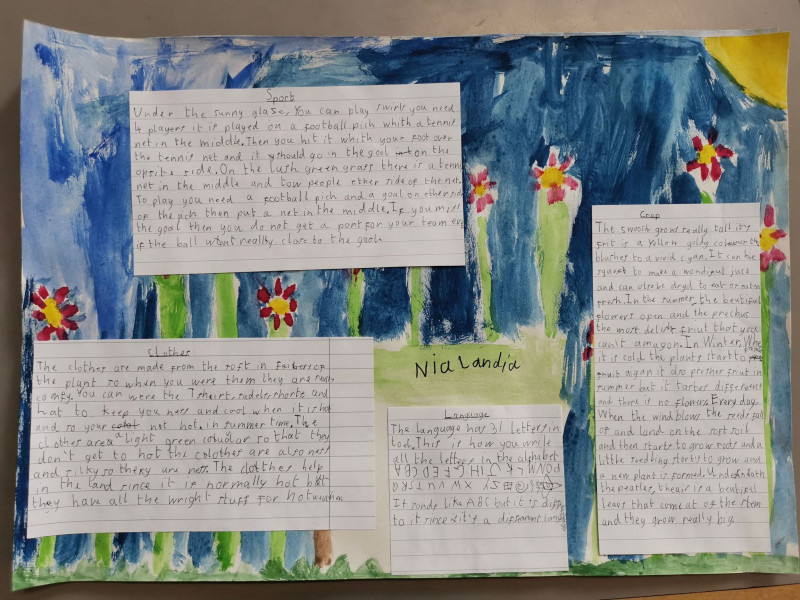 Sport
Under the sunny glaze, You can play swirls you need
4 players it is played on a football pich whith a tennis
net in the middle. Then you hit it whith your foot over
the tennis net and it should go in the goal on the
opsite side. On the lush green grass there is a tennis
net in the middle and tow people ether side of the net.
To play you need a football pich and a goal on ether side
of the pich then put a net in the middle. If you miss
the goal then you do not get a pont for your team even
if the ball went reallly close to the goal.
Clothes
The clothes are made from the soft in of
the plant so when you were them they are really
comfy. You can were the T shirt, shorts and
hat to keep you and cool when it is hot
and so your not hot in summer time. The
clothes are a light green so that they
don't get to hot the colothes are also
and silky so thery are The clothes help
in the land since it is normally hot but
they have all the wright stuff for hot weather
Nia Landia
Language
The language has 31 letters in
This is how you write
all the letters in the alphabet
It sonds like ABC but it is
to it since it's a different
Crop
The grows really tall it's
frut is a yellow goldy colour
blushes to a vivid cyan. It can be
to make a wonderful juice
and can olso be dryd to eat or
fresh. In the summer, the beutiful
flowers open and the
the most fruit that you
In Winter,
it is cold the plants start to
fruit again it also fruit in
summer but it tastes different
and there is no flowers. Every day,
When the wind blows the seeds fall
of and land on the soft soil
and then starts to grow roots and a
little seedling starts to grow and
a new plant is formed. Undeneath
the peatles, is a beutiful
leavs that come at of the stem
and they grow really big.